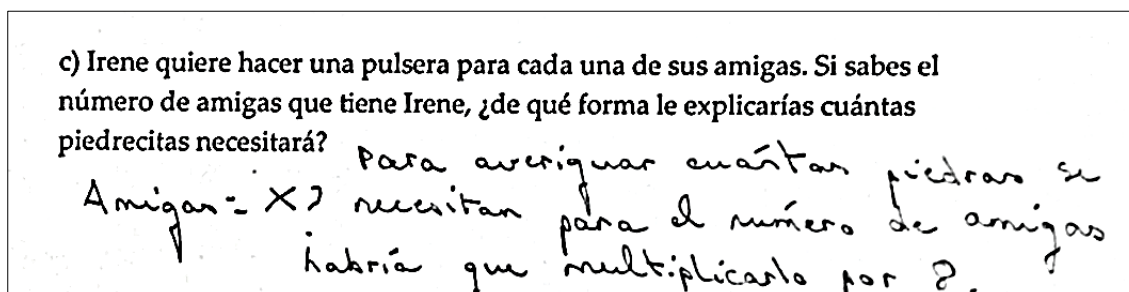 c) Irene quiere hacer una pulsera para cada una de sus amigas. Si sabes el
número de amigas que tiene Irene, ¿de qué forma le explicarías cuántas
piedrecitas necesitará?
Para averiguar cuántas piedras se
Amigas = X? necesitan para el número de amigas
habría que multiplicarlo por ?.